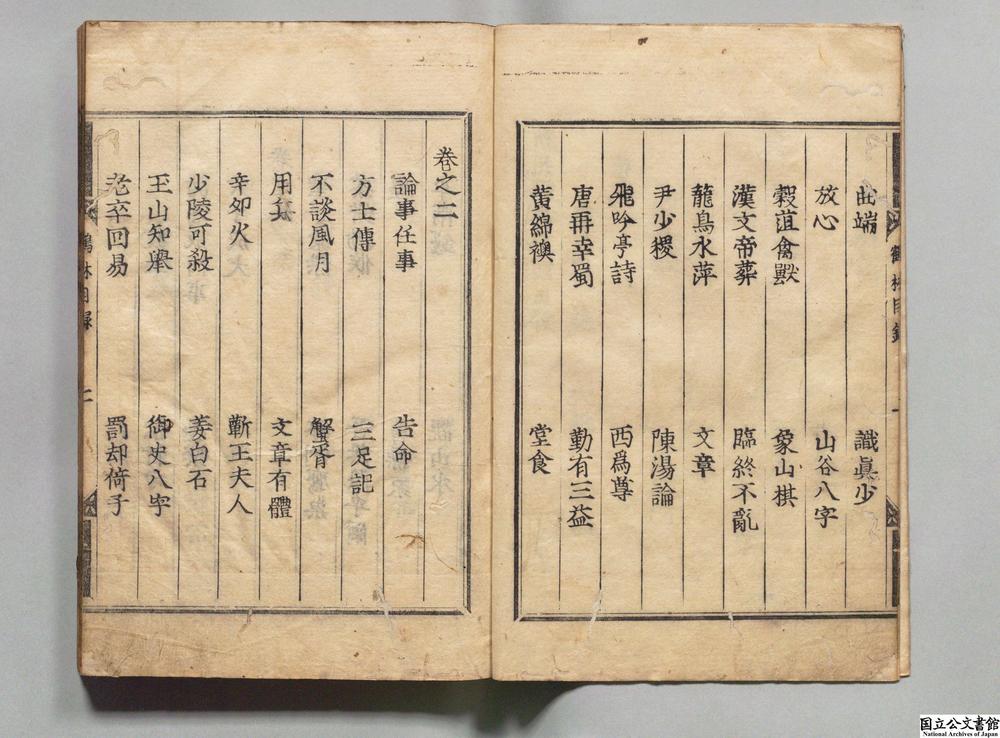 識眞少
放心　山谷八字
穀菹禽獸　象山棋
漢文帝葬　臨終不亂
籠鳥水萍　文章
尹少稷　陳湯論
飛吟亭詩　西爲尊
唐再幸蜀　勤有三益
黄綿襖　堂食
卷之二
論事任事　告命
方士傳　三足記
不談風月　蟹胥
用兵　文章有體
辛卯火　蘄王夫人
少陵可殺　姜白石
玉山知舉　御史八字
老卒回易　罰却倚子
鶴林目録　二
国立公文書館
National Archives of Japan